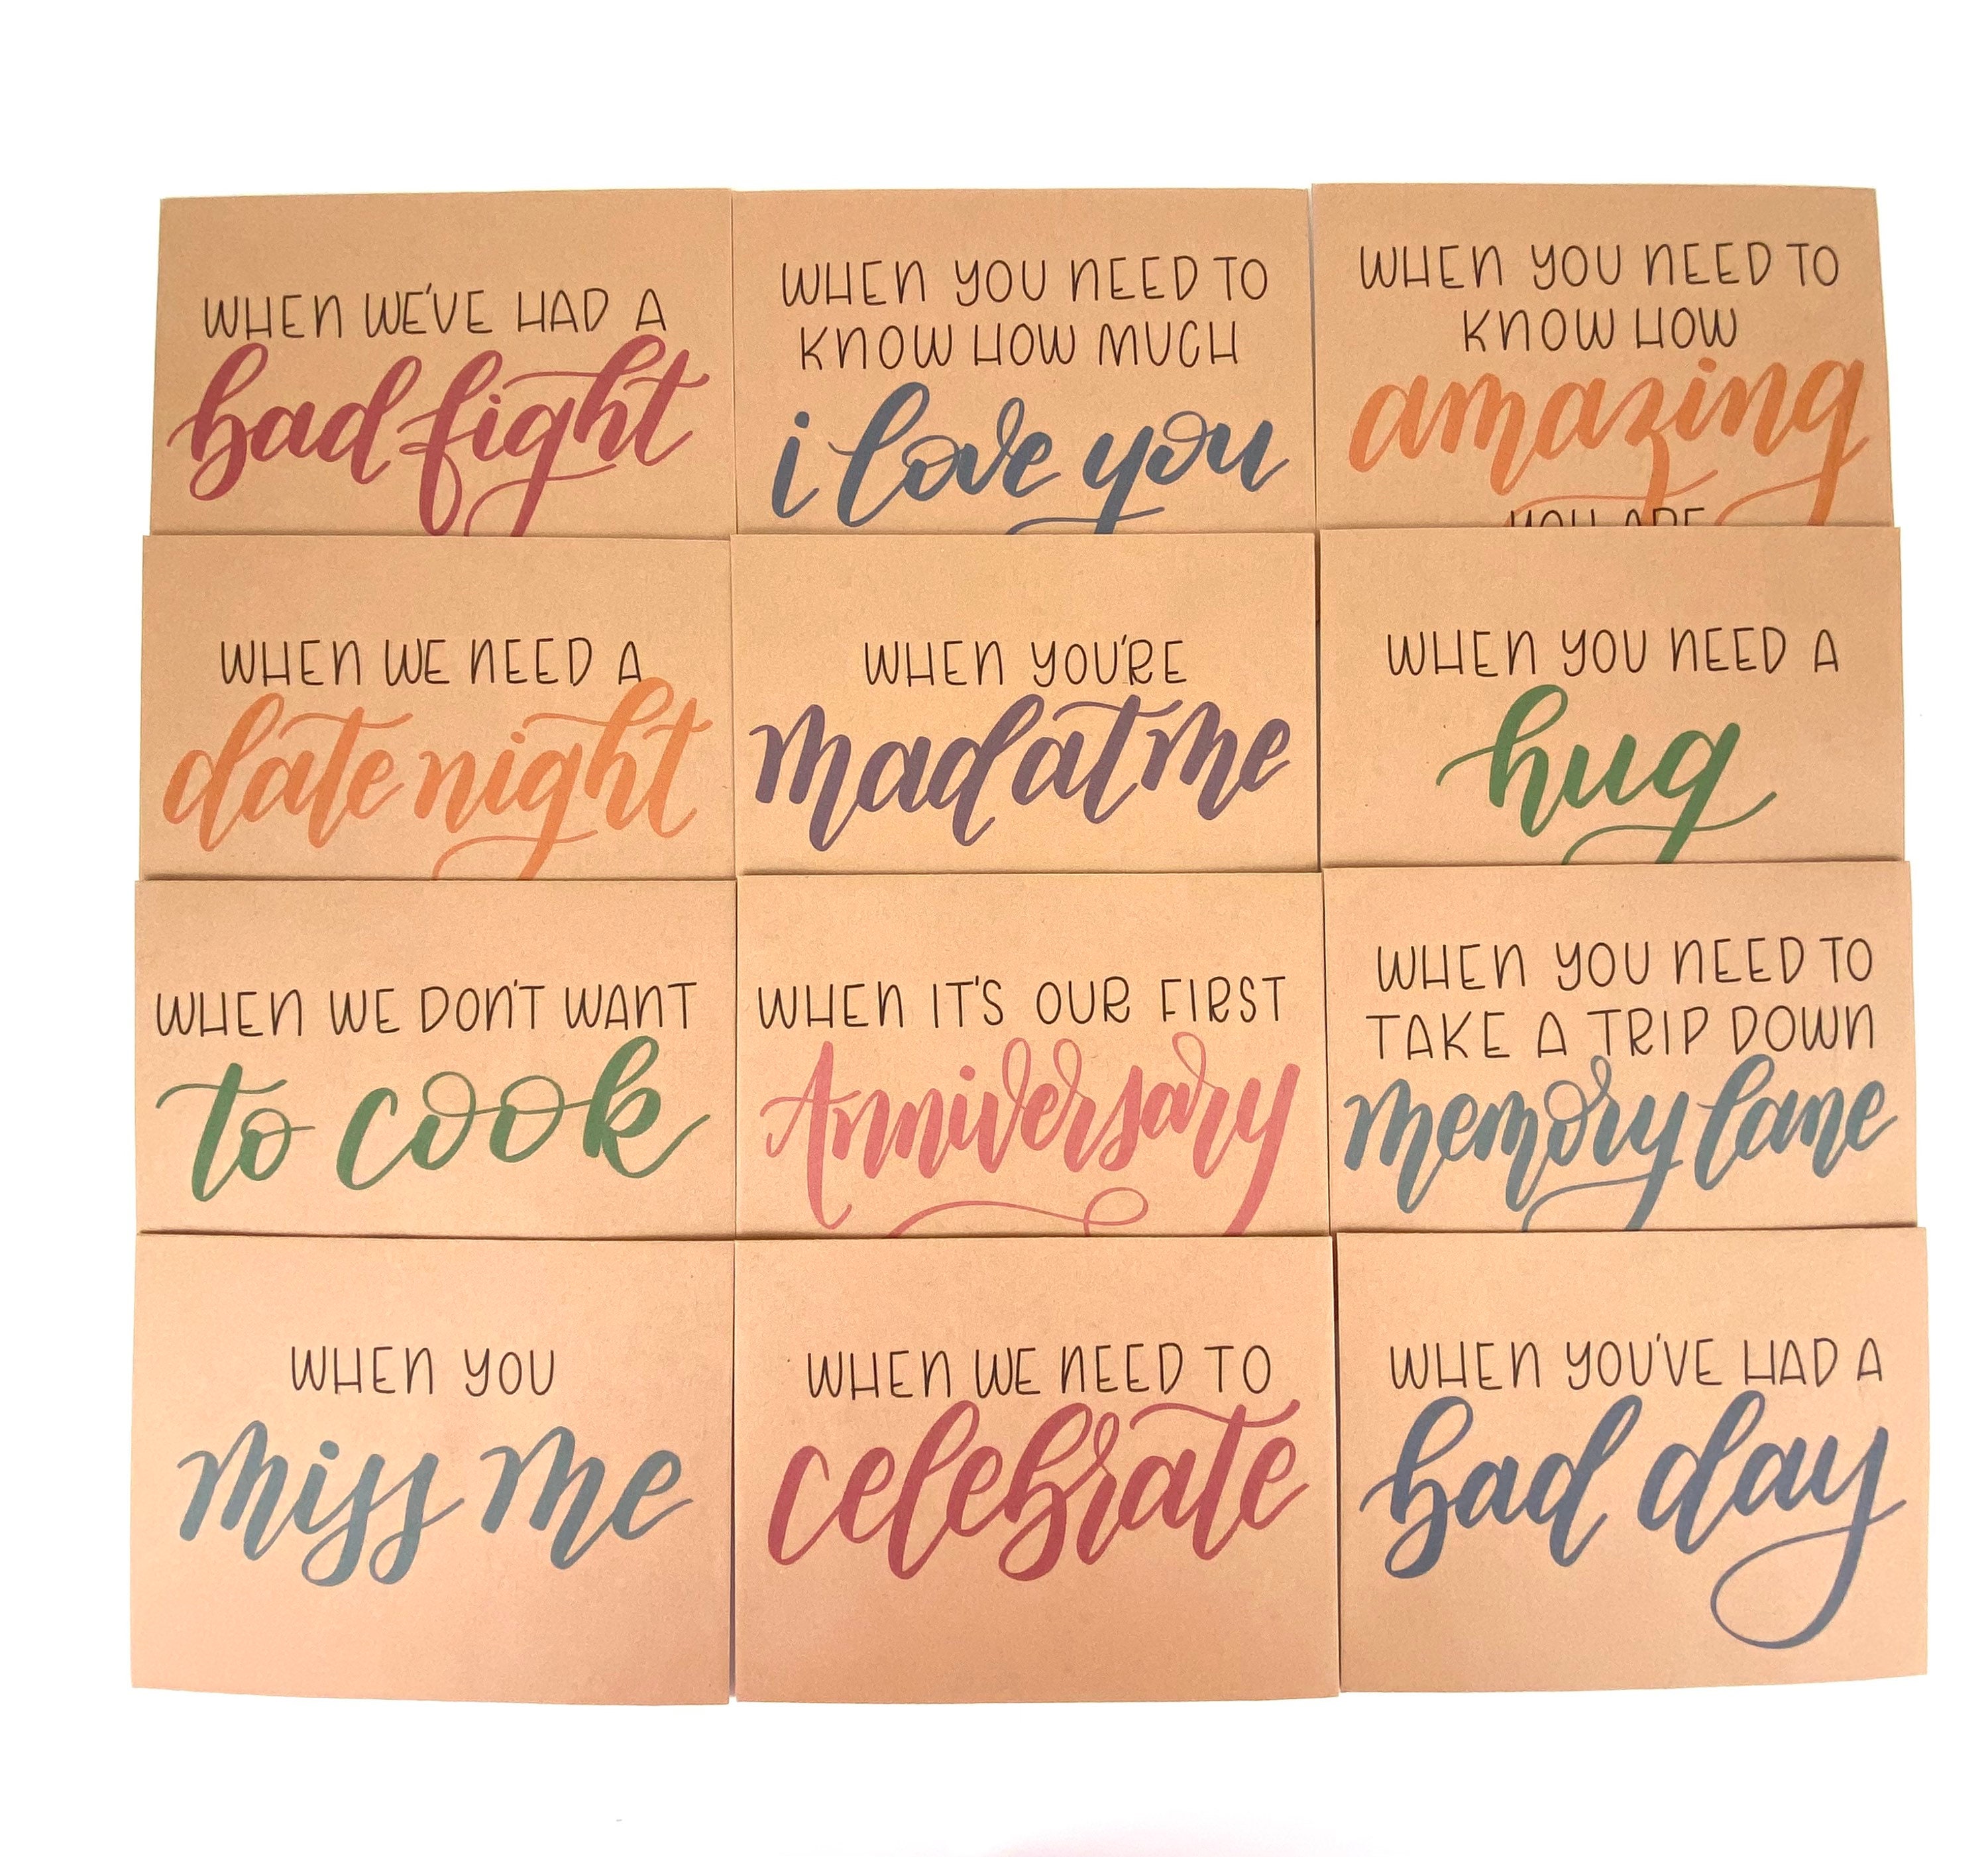 WHEN WE'VE HAD A
bad fight
WHEN YOU NEED TO
KNOW HOW MUCH
i love you
WHEN YOU NEED TO
KNOW HOW
amazing
YOU ARE
WHEN WE NEED A
date night
WHEN YOU'RE
mad at me
WHEN YOU NEED A
hug
WHEN WE DON'T WANT
to cook
WHEN IT'S OUR FIRST
Anniversary
WHEN YOU NEED TO
TAKE A TRIP DOWN
memory lane
WHEN YOU
miss me
WHEN WE NEED TO
celebrate
WHEN YOU'VE HAD A
bad day